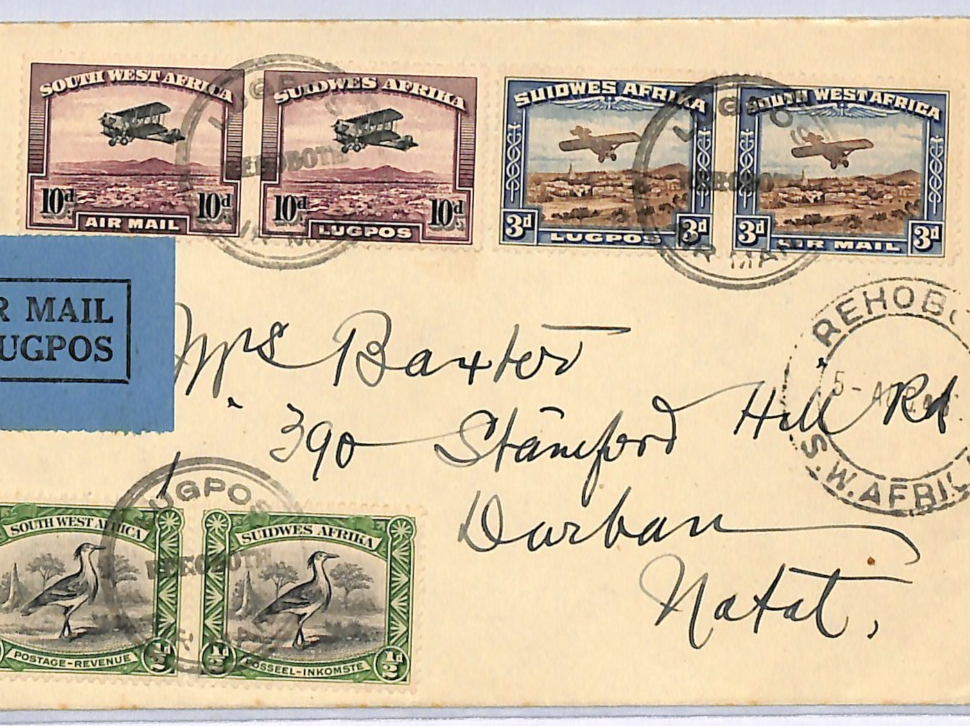 SOUTH WEST AFRICA
10d 10d
AIR MAIL
SUIDWES AFRIKA
10d 10d
LUGPOS
SUIDWES AFRIKA
3d 3d
LUGPOS
SOUTH WEST AFRICA
3d 3d
AIR MAIL
LUGPOS
REHOBOTH
AIR MAIL
LUGPOS
REHOBOTH
AIR MAIL
R MAIL
UGPOS
REHOBO
5-AUG
S.W.AFRICA
Mrs Baxter
390 Stamford Hill Rd
Durban
Natal.
SOUTH WEST AFRICA
POSTAGE-REVENUE
½d
SUIDWES AFRIKA
½d ½d
POSSEEL-INKOMSTE
LUGPOS
REHOBOTH
AIR MAIL